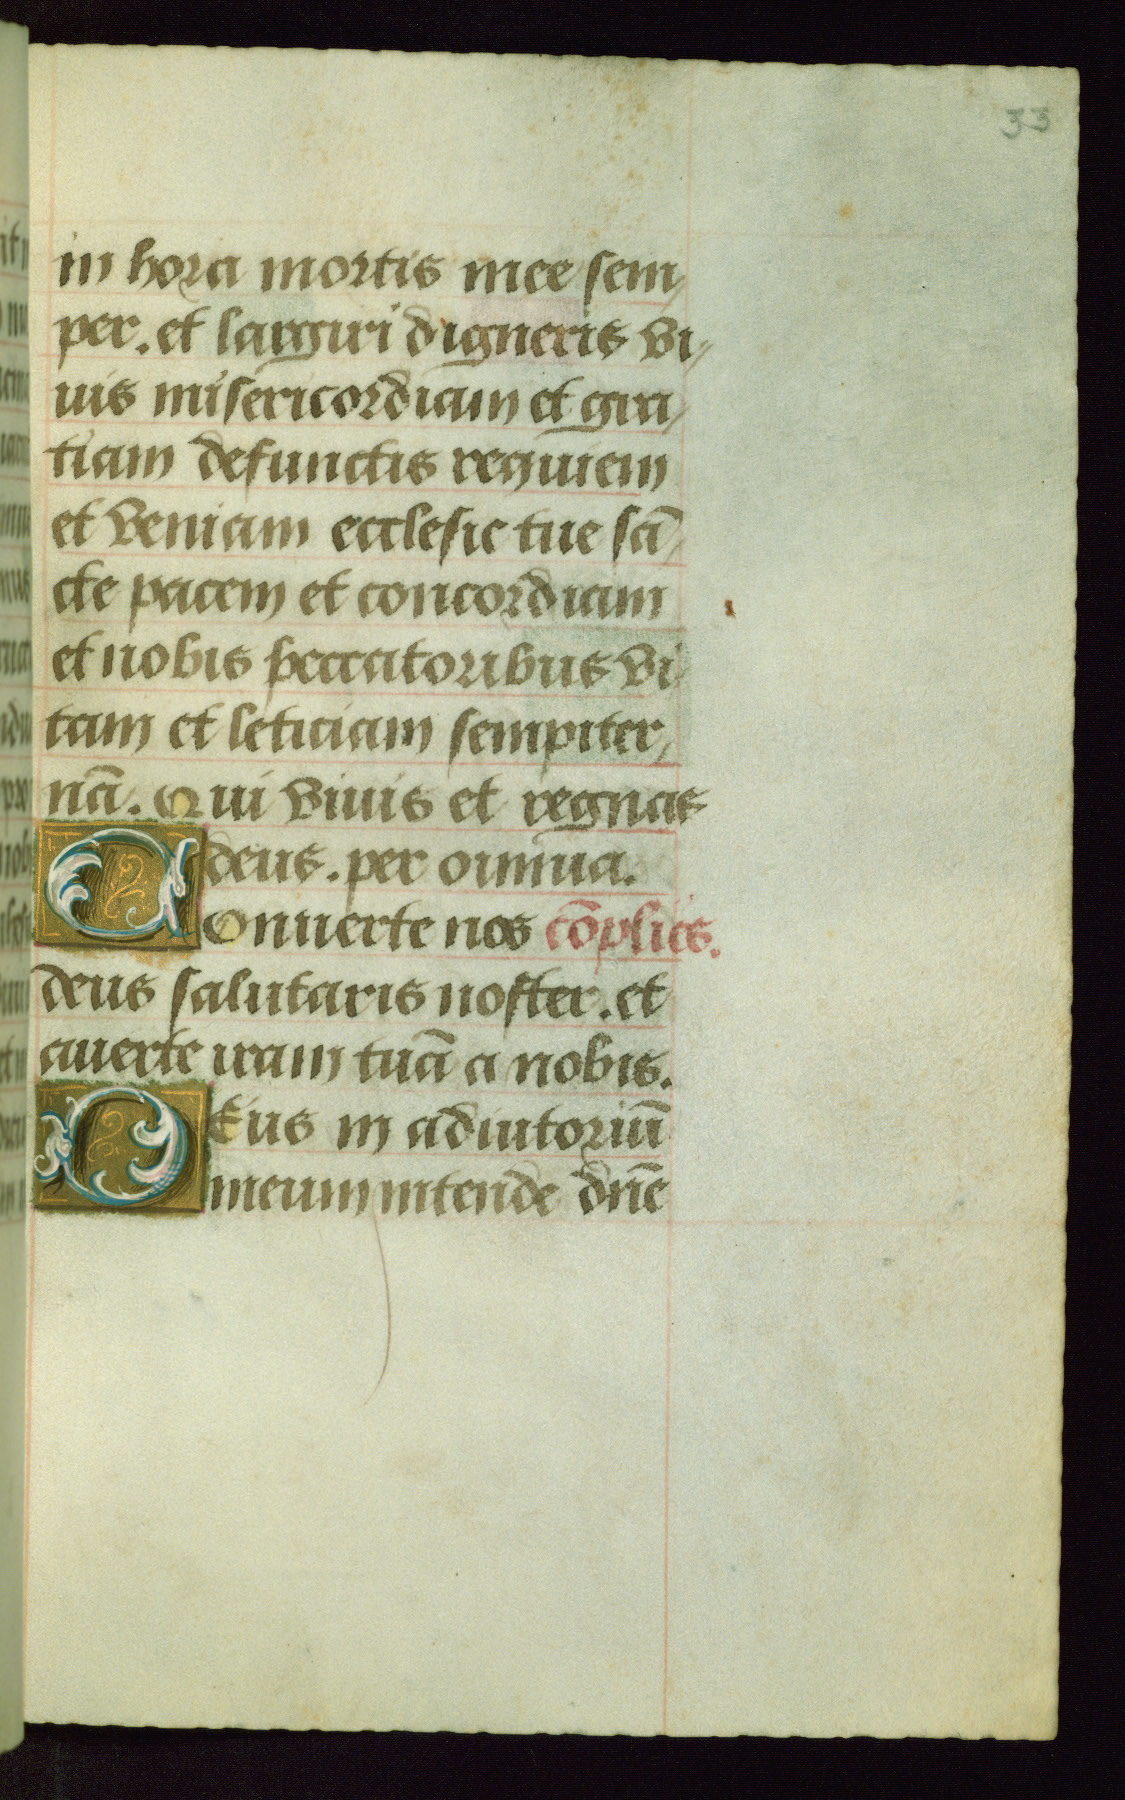 33
in hora mortis mee sem/
per. et largiri digneris vi//
uis misericordiam et gra/
tiam defunctis requiem
et veniam ecclesie tue sā/
cte pacem et concordiam
et nobis peccatoribus vi
tam et leticiam sempiter/
nā. Qui viuis et regnas
deus. per omnia.
Conuerte nos cōplies.
deus salutaris noster. et
auerte iram tuā a nobis.
DEus in adiutoriū
meum intende dn̄e